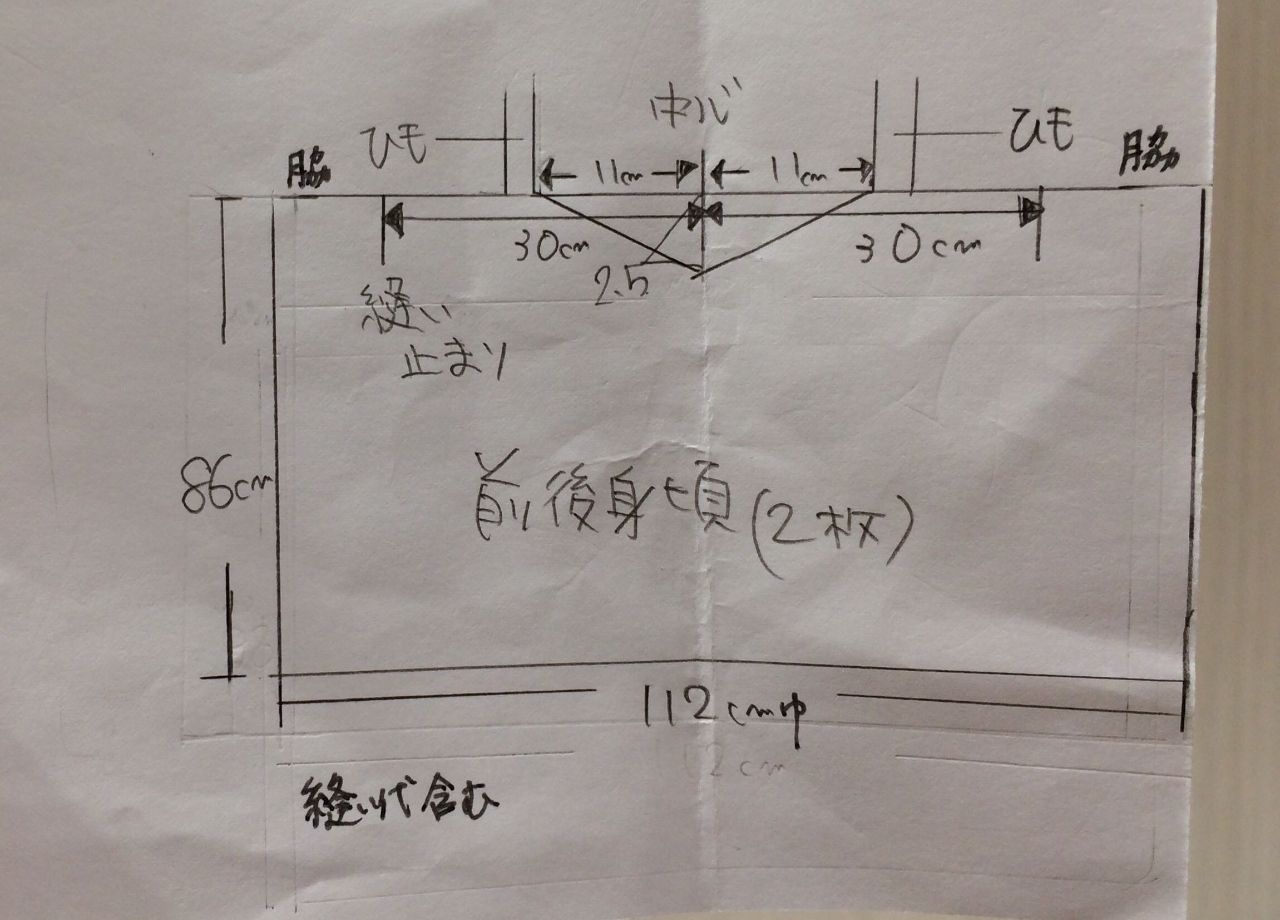 中心
ひモ
ひモ
脇
脇
11cm
11cm
30cm
30cm
2.5
縫い
止まり
86cm
前後身頃(2枚)
112cm巾
縫い代含む